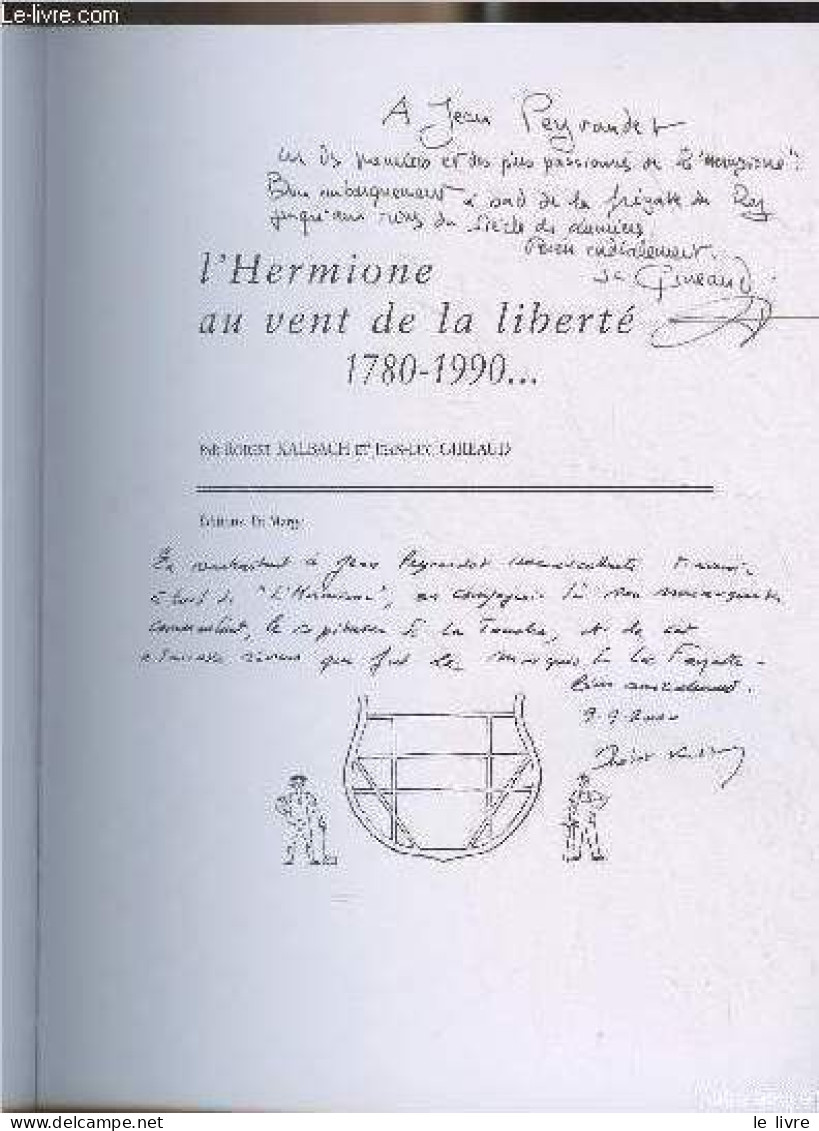 Le-livre.com
A Jean Peyraudet
un des premiers et des plus passionnés de l'"Hermione".
Bon embarquement à bord de la frégate du Roy
jusqu'aux rives du siècle des lumières.
Bien cordialement.
Gireaud
l'Hermione
au vent de la liberté
1780-1990...
PAR ROBERT KALBACH ET JEAN-LUC GIREAUD
Éditions
En souhaitant à Jean Peyraudet
à bord de "L'Hermione", en compagnie de son
commandant, le capitaine de La Touche, et de cet
que fut le marquis de La Fayette -
Bien amicalement.
www.le-livre.com
le livre